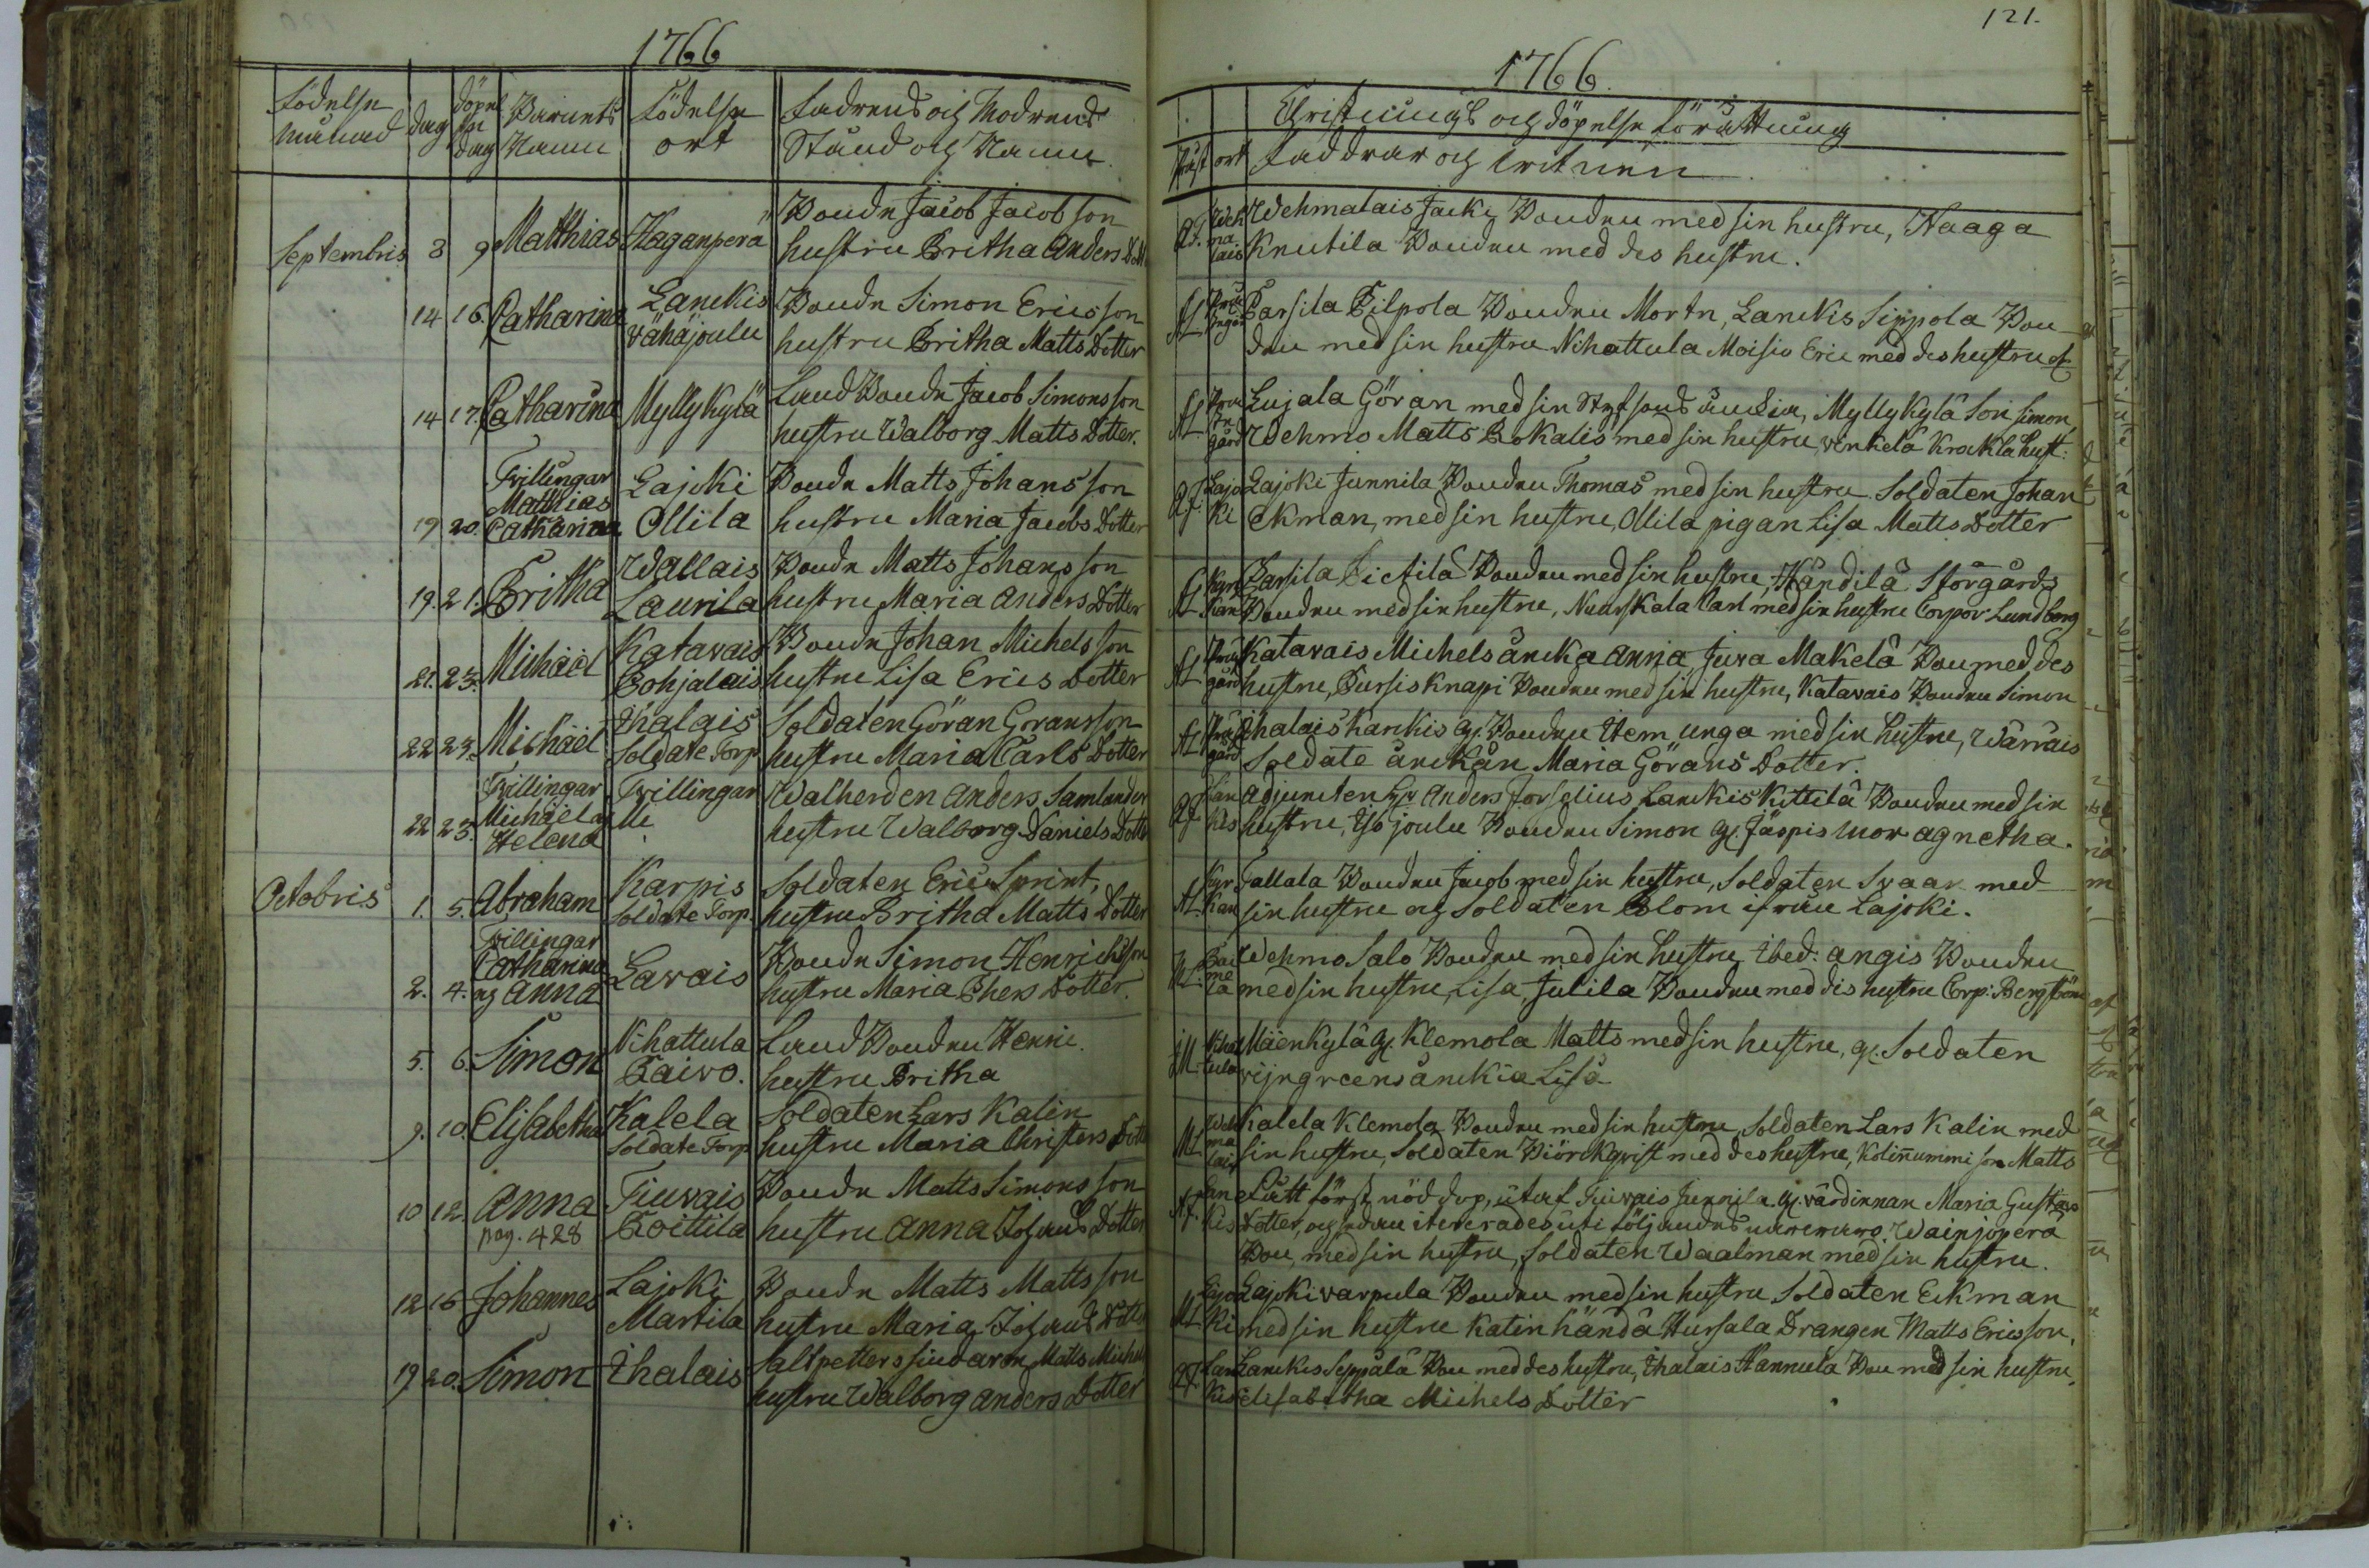 1766
födelse månad
dag
döpelse dag
Barnets Namn
födelse ort
Fadrens och Modrens Stånd och Namn
Septembris 8 9 Matthias Haganperä Bonde Jacob Jacobsson
hustru Britha Anders Dott
14 16. Catharina Lanckis Vähäjoulu Bonde Simon Ericsson
hustru Britha Matts Dotter
14 17. Catharina Myllykylä Land Bonde Jacob Simonsson
hustru Walborg Matts Dotter.
19 20. Tvillingar Matthias Catharina Lajoki Ollila Bonde Matts Johansson
hustru Maria Jacobs Dotter
19. 21. Britha Wallais Laurila Bonde Matts Johansson
hustru Maria Anders Dotter
21. 23. Michaël Katavais Pohjalais Bonde Johan Michelsson
hustru Lisa Erics Dotter
22 23. Michaël Ihalais Soldate Torp Soldaten Göran Göransson
hustru Maria Carls Dotter
22 23. Tvillingar Michaël og Helena Tvillingar Walherden Anders Samlander
hustru Walborg Daniels Dotter
Octobris 1. 5. Abraham Karpis Soldate Torp. Soldaten Eric Sprint,
hustru Britha Matts Dotter
2. 4. Tvillingar Catharina og Anna Lavais Bonde Simon Henrichsson
hustru Maria Thers Dotter.
5. 6. Simon Nihattula Raivo. Land Bonden Henric.
hustru Britha
9. 10. Elisabetha Kalela Soldate Torp Soldaten Lars Kalin
hustru Maria Christers Dott
10 12. Anna pag. 428 Tiuvais Koittila Bonde Matts Simonsson
hustru Anna Johans Dotter
12 16 Johannes Lajoki Martila Bonde Matts Mattsson
hustru Maria Johans Dotter
19. 20. Simon Ihalais Saltpetters siudaren Matts Michels
hustru Walborg Anders Dotter
121.
1766.
Christnings och döpelse förrättning
Präst ort Faddrar och Vitnen
A.F. Wehmalais Wehmalais Jacki Bonden med sin hustru, Haaga
Knutila Bonden med des hustru.
AL Parsila Pilpola Bonden Morten, Lanckis Seppola Bon
den med sin hustru Nihattula Moisio Eric med des hustru
AL Lujala Göran med sin Styfsons änckia, Myllykylä Son Simon,
Wehmo Matts Rokalis med sin hustru, vinkelä Krockla hust:
A.F. Lajoki Lajoki Junnila Bonden Thomas med sin hustru. Soldaten Johan
Ekman, med sin hustru, Ollila pigan Lisa Matts Dotter
AL Kyrkan Parsila Pietilä Bonden med sin hustru, Händilä Storgårds
Bonden med sin hustru, Nuuskala Carl med sin hustru Corpor Lundborg
AL Katavais Michels äncka Anna, Juva Makelä Bon med des
hustru, Pursis Knapi Bonden med sin hustru, Katavais Bonden Simon
AL Ihalais Hanckis og. Bonden Item unga med sin hustru, Wärräis
Soldate änckan Maria Görans Dotter.
A.F. Lanckis Adjuncten Hr Anders Forselius, Lanckis Kittilä Bonden med sin
hustru, Iso joulu Bonden Simon og. Jäspis mor Agnetha.
AL. Kyrkan Tallala Bonden Jacob med sin hustru, Soldaten Svaan med
sin hustru og Soldaten Blom ifrån Lajoki.
Wehmo Salo Bonden med sin hustru ibed: Angis Bonden
med sin hustru, Lisa, Julila Bonden med dis hustru Corp: Bergström
Nihattula Mäenkylä og. Klemola Matts med sin hustru, og. Soldaten
vijngreens änckia Lisa
Wehmalais Kalela Klemola Bonden med sin hustru, Soldaten Lars Kalin med
sin hustru, Soldaten Biörckqvist med des hustru, Kolinummi son Matts
A.F. Lanckis Fått först nöd dop, utaf Tiuvais Junnila og. värdinnan Maria Gustavs
Dotter, og sedan itererades uti följandes närvaro. Wainjoperä
Bon, med sin hustru, Soldaten Waalman med sin hustru.
Lajoki Lajoki varpula Bonden med sin hustru Soldaten Eckman
med sin hustru Katinhändä Hursala Drangen Matts Ericsson.
Lanckis Lanckis Seppälä Bon med des hustru, Ihalais Hannula Bon med sin hustru,
Elisabetha Michels Dotter